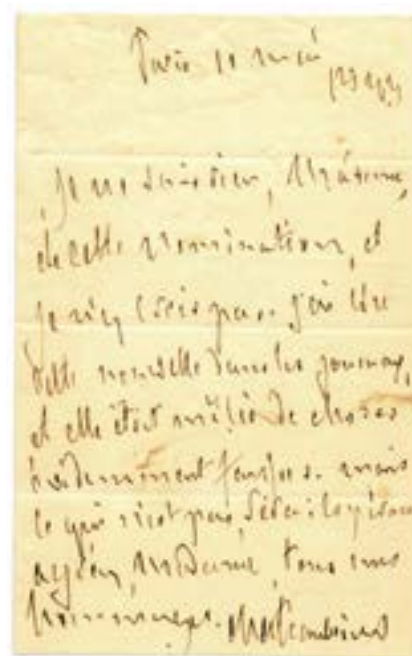 Paris 10 mai
Je ne sais rien, Madame,
de cette nomination, et
je n'y crois pas. J'ai lu
cette nouvelle dans les journaux,
et elle était mêlée de choses
évidemment fausses. mais
ce qui n'est pas
agréez, Madame, tous mes
hommages.